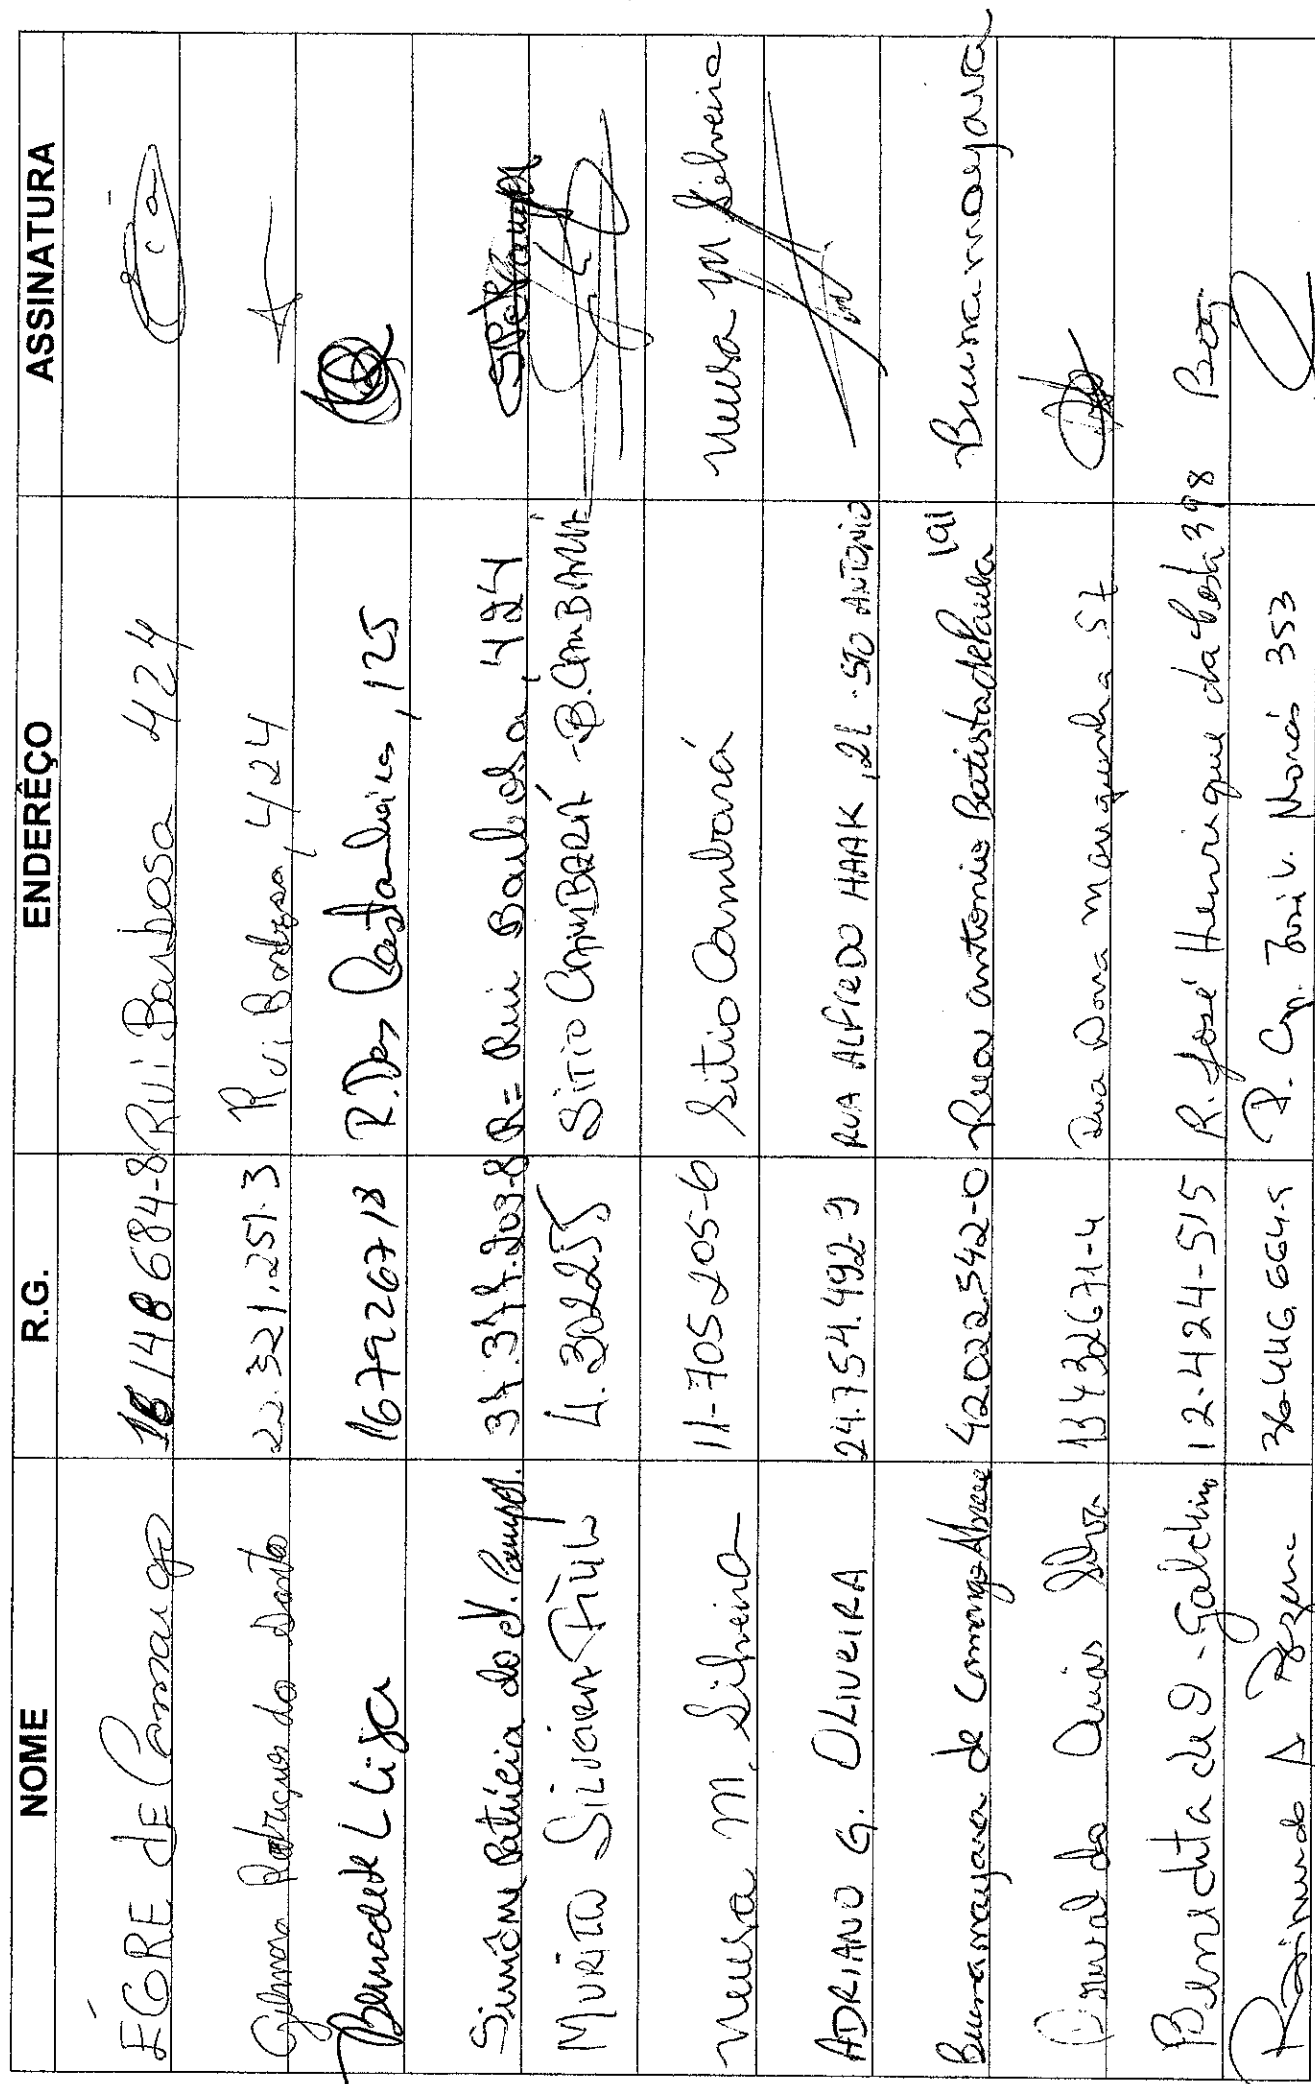 NOME R.G. ENDERÊÇO ASSINATURA
ÉGRE dE Camargo 148 684-8 RUi Barbosa 424
Rodrigues do Santos 22.321.251-3 Rui Barbosa, 424
Bernadete L Lisa 167926718 R. Das Castanheiras, 125
Simône Patrícia do N. Campos. 34.377.203-8 R= Rui Barbosa, 424
MURiLLO SiLVEiRA FiLHO 4.302255 SiTiO CAMBARÁ - B. CAMBARÁ
Neusa M. Silveira 11-705205-6 Sitio Cambará Neusa M Silveira
ADRIANO G. OLIVEIRA 24.754.492-9 RUA ALFREDO HAAK, 21 - STO ANTONIO
Brunamayara de Camargo Abreu 42022542-0 Rua antonio Batista de Paula 191 Brunamayara
do Arias Silva 13432671-4 Rua Dona mariquinha 57
Benedita de O - Galdino 12-424-515 R. José Henrique da Costa 398
Raimundo A 36446664-5 R. Cap. José V. Morais 353